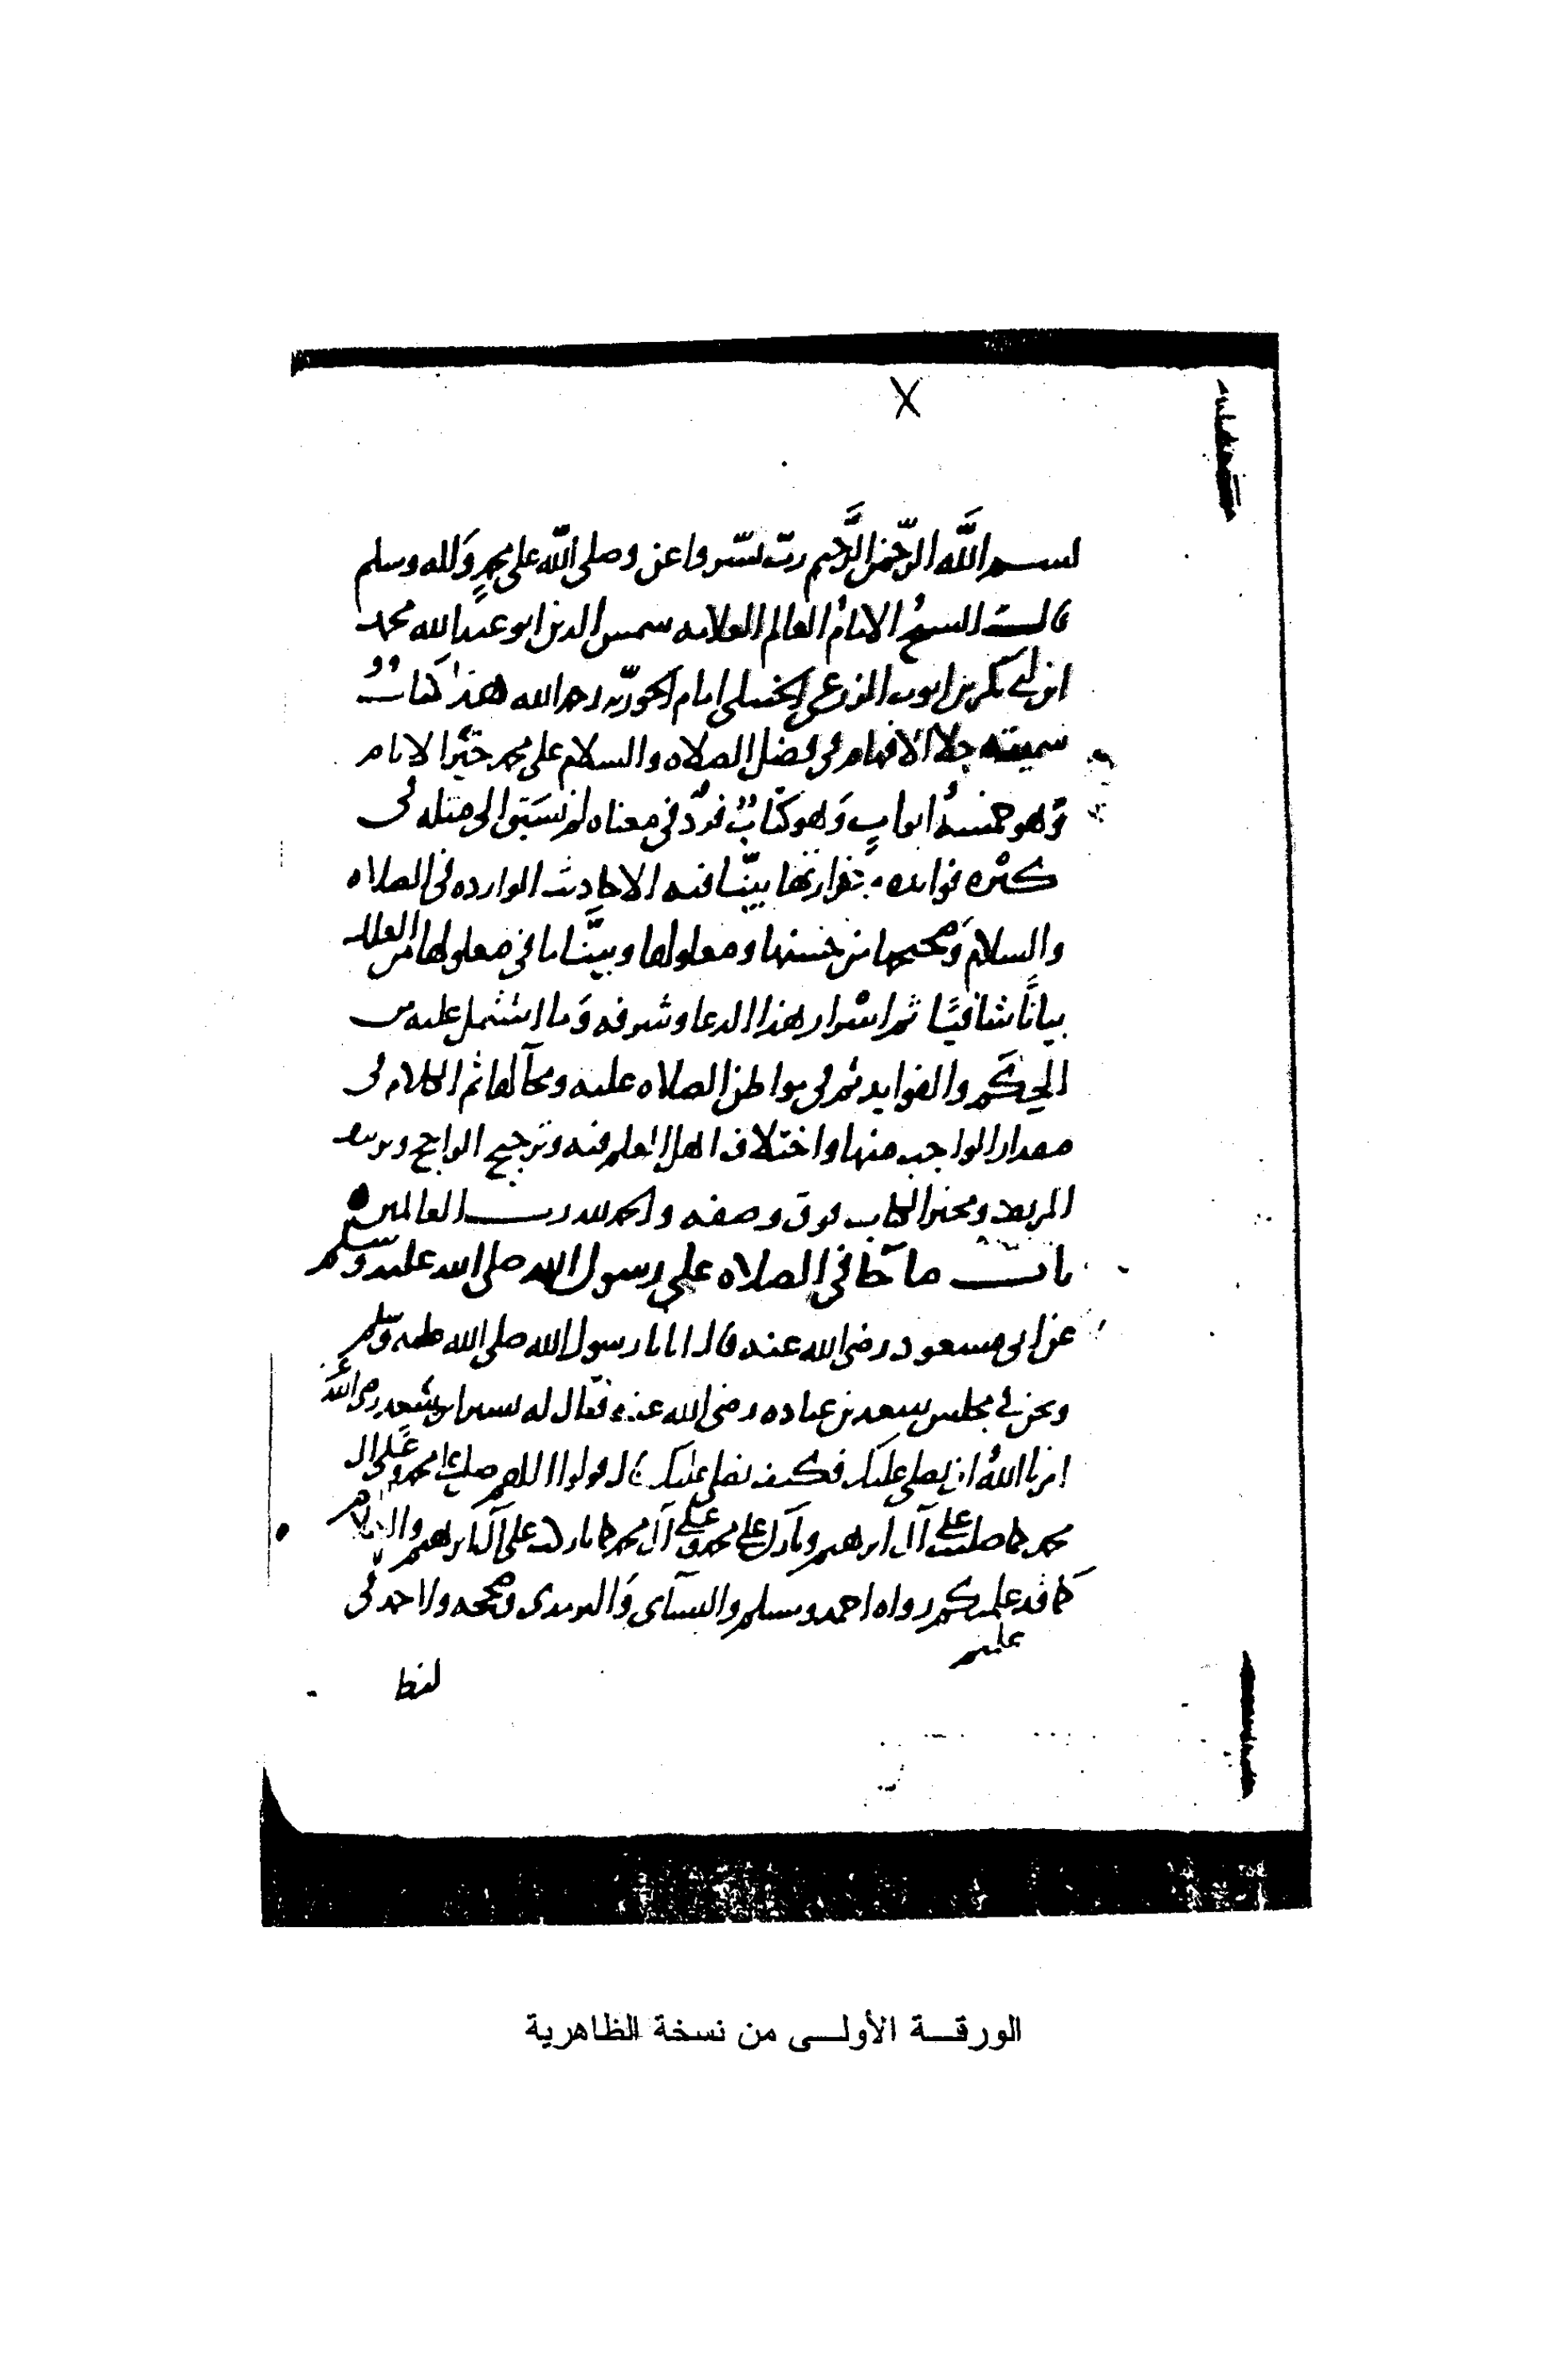 بسم الله الرَّحمن الرَّحيم ربّ يسّر واعن وصلى الله على محمدٍ وَاله وسلم
قال الشيخُ الامامُ العالم العلامه شمس الدين ابو عبد الله محمد
ابن ابي بكر بن ايوب الزرعي الحنبلي امام الجوزيّه رحمه الله هذا كتابٌ
سميته جلا الافهام في فضل الصلاه والسلام على محمد خَيْر الانام
وَهو خمسهُ ابوابٍ وَهو كتابٌ فردٌ في معناه لم نسَبق الى مثله في
كثره فوايده وغزارتها بيّنا فيه الاحاديث الوارده في الصلاه
والسلام وَصحيحها من حسنها ومعلولها وبيَّنا ما في معلولها من العلل
بيانًا شافيًا ثم اسْرار هذا الدعا وشرفه وَما اشتمل عليه من
الحِكَم والفوايد ثم في مواطن الصلاه عليه ومحآلها ثم الكلام في
مقدار الواجب منها واختلاف اهل العلم فيه وترجيح الراجح وتزييف
المزيف ومخبر الكتاب فوق وصفه والحمد لله رب العالمين
باب ما جآ في الصلاه على رسول الله صلى الله عليه وسَلّم
عن ابي مسعود رضي الله عنه قال اتانا رسول الله صلى الله عليه وسلم
ونحن في مجلس سعد بن عباده رضي الله عنه فقال له بشير بن سَعد رضي اللهُ عَنه
امرنا اللهُ ان نصلي عليك فكيف نصلي عليك قال قولوا اللهم صل على محمد وعَلى ال
محمد كما صليت على آل ابرهيم وبَارك على محمد وعَلى آل محمد كما باركت على آل ابرهيم والسلام
كما قد علمتكم رواه احمد ومسلم والنسآى وَالترمذى وصححه ولاحمد في
علمتم
لفظ
الورقـــة الأولـــى من نسخة الظاهرية